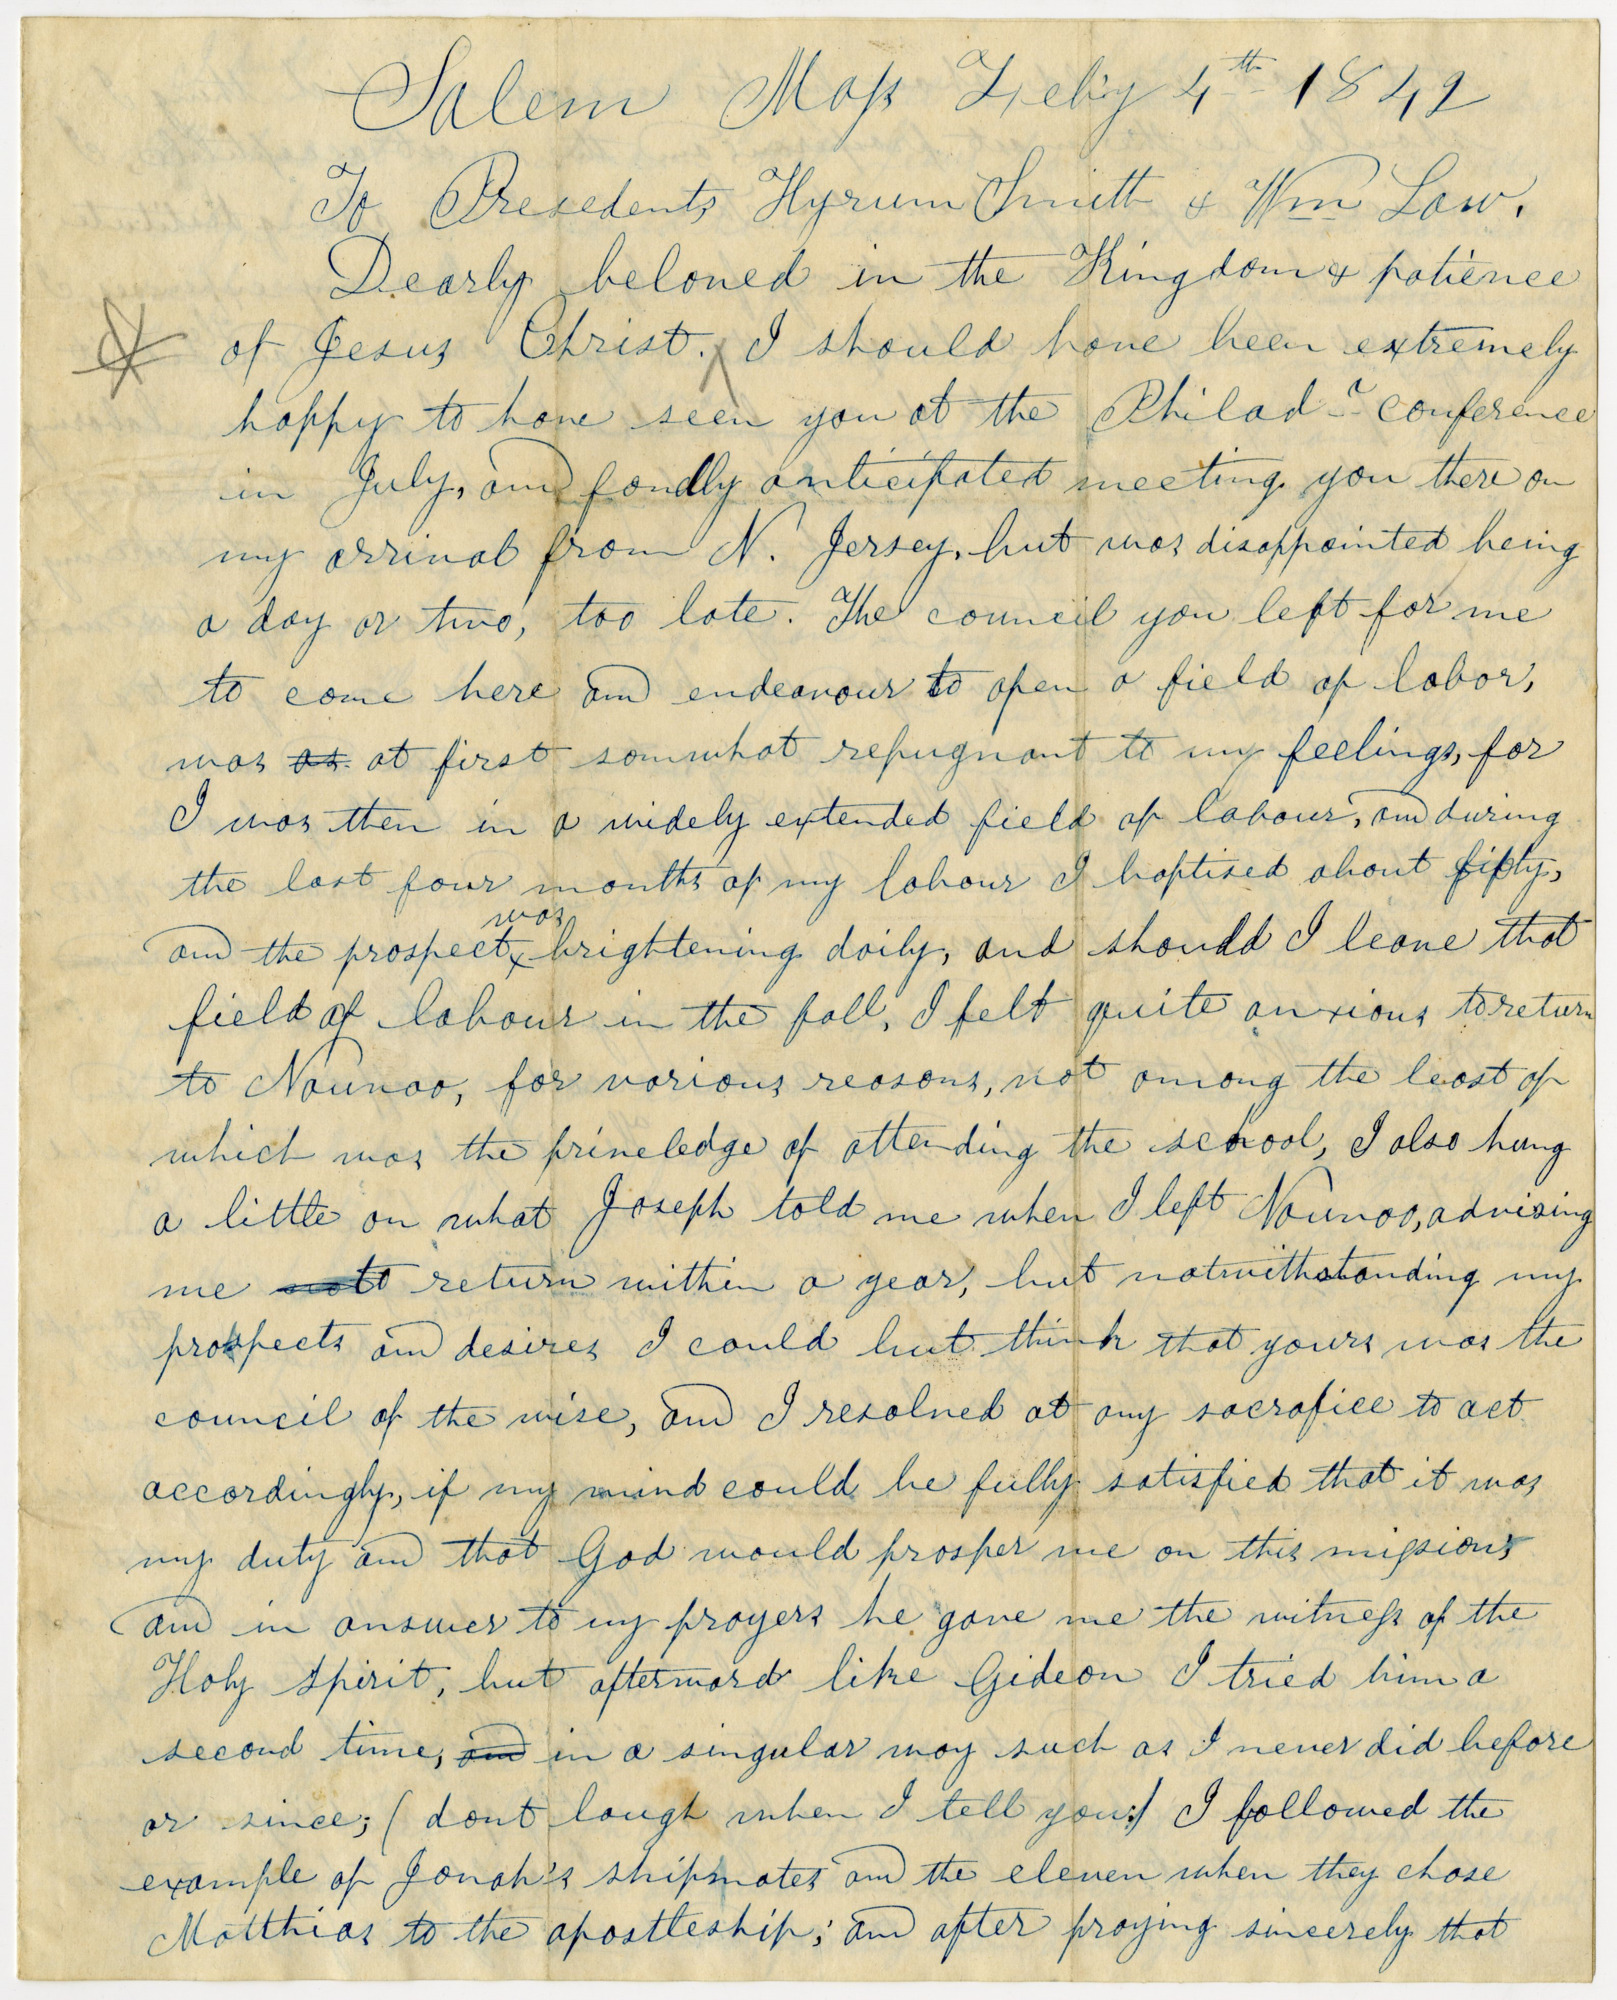 Salem Mass Feby 4th 1842
To Presedents Hyrum Smith & Wm Law.
Dearly beloved in the Kingdom & patience
of Jesus Christ. I should have been extremely
happy to have seen you at the Philada conference
in July, and fondly anticipated meeting you there on
my arrival from N. Jersey, but was disappointed being
a day or two, too late. The council you left for me
to come here and endeavour to open a field of labor,
was as at first somwhat repugnant to my feelings, for
I was then in a widely extended field of labour, and during
the last four months of my labour I baptised about fifty,
was
and the prospect brightening daily, and should I leave that
field of labour in the fall, I felt quite anxious to return
to Nauvoo, for various reasons, not among the least of
which was the priveledge of attending the school, I also hung
a little on what Joseph told me when I left Nauvoo, advising
me not to return within a year, but notwithstanding my
prospects and desires I could but think that yours was the
council of the wise, and I resolved at any sacrafice to act
accordingly, if my mind could be fully satisfied that it was
my duty and that God would prosper me on this mission,
and in answer to my prayers he gave me the witness of the
Holy Spirit, but afterward like Gideon I tried him a
second time, and in a singular way such as I never did before
or since; (dont laugh when I tell you:) I followed the
example of Jonah's shipmates and the eleven when they chose
Matthias to the apostleship; and after praying sincerely that